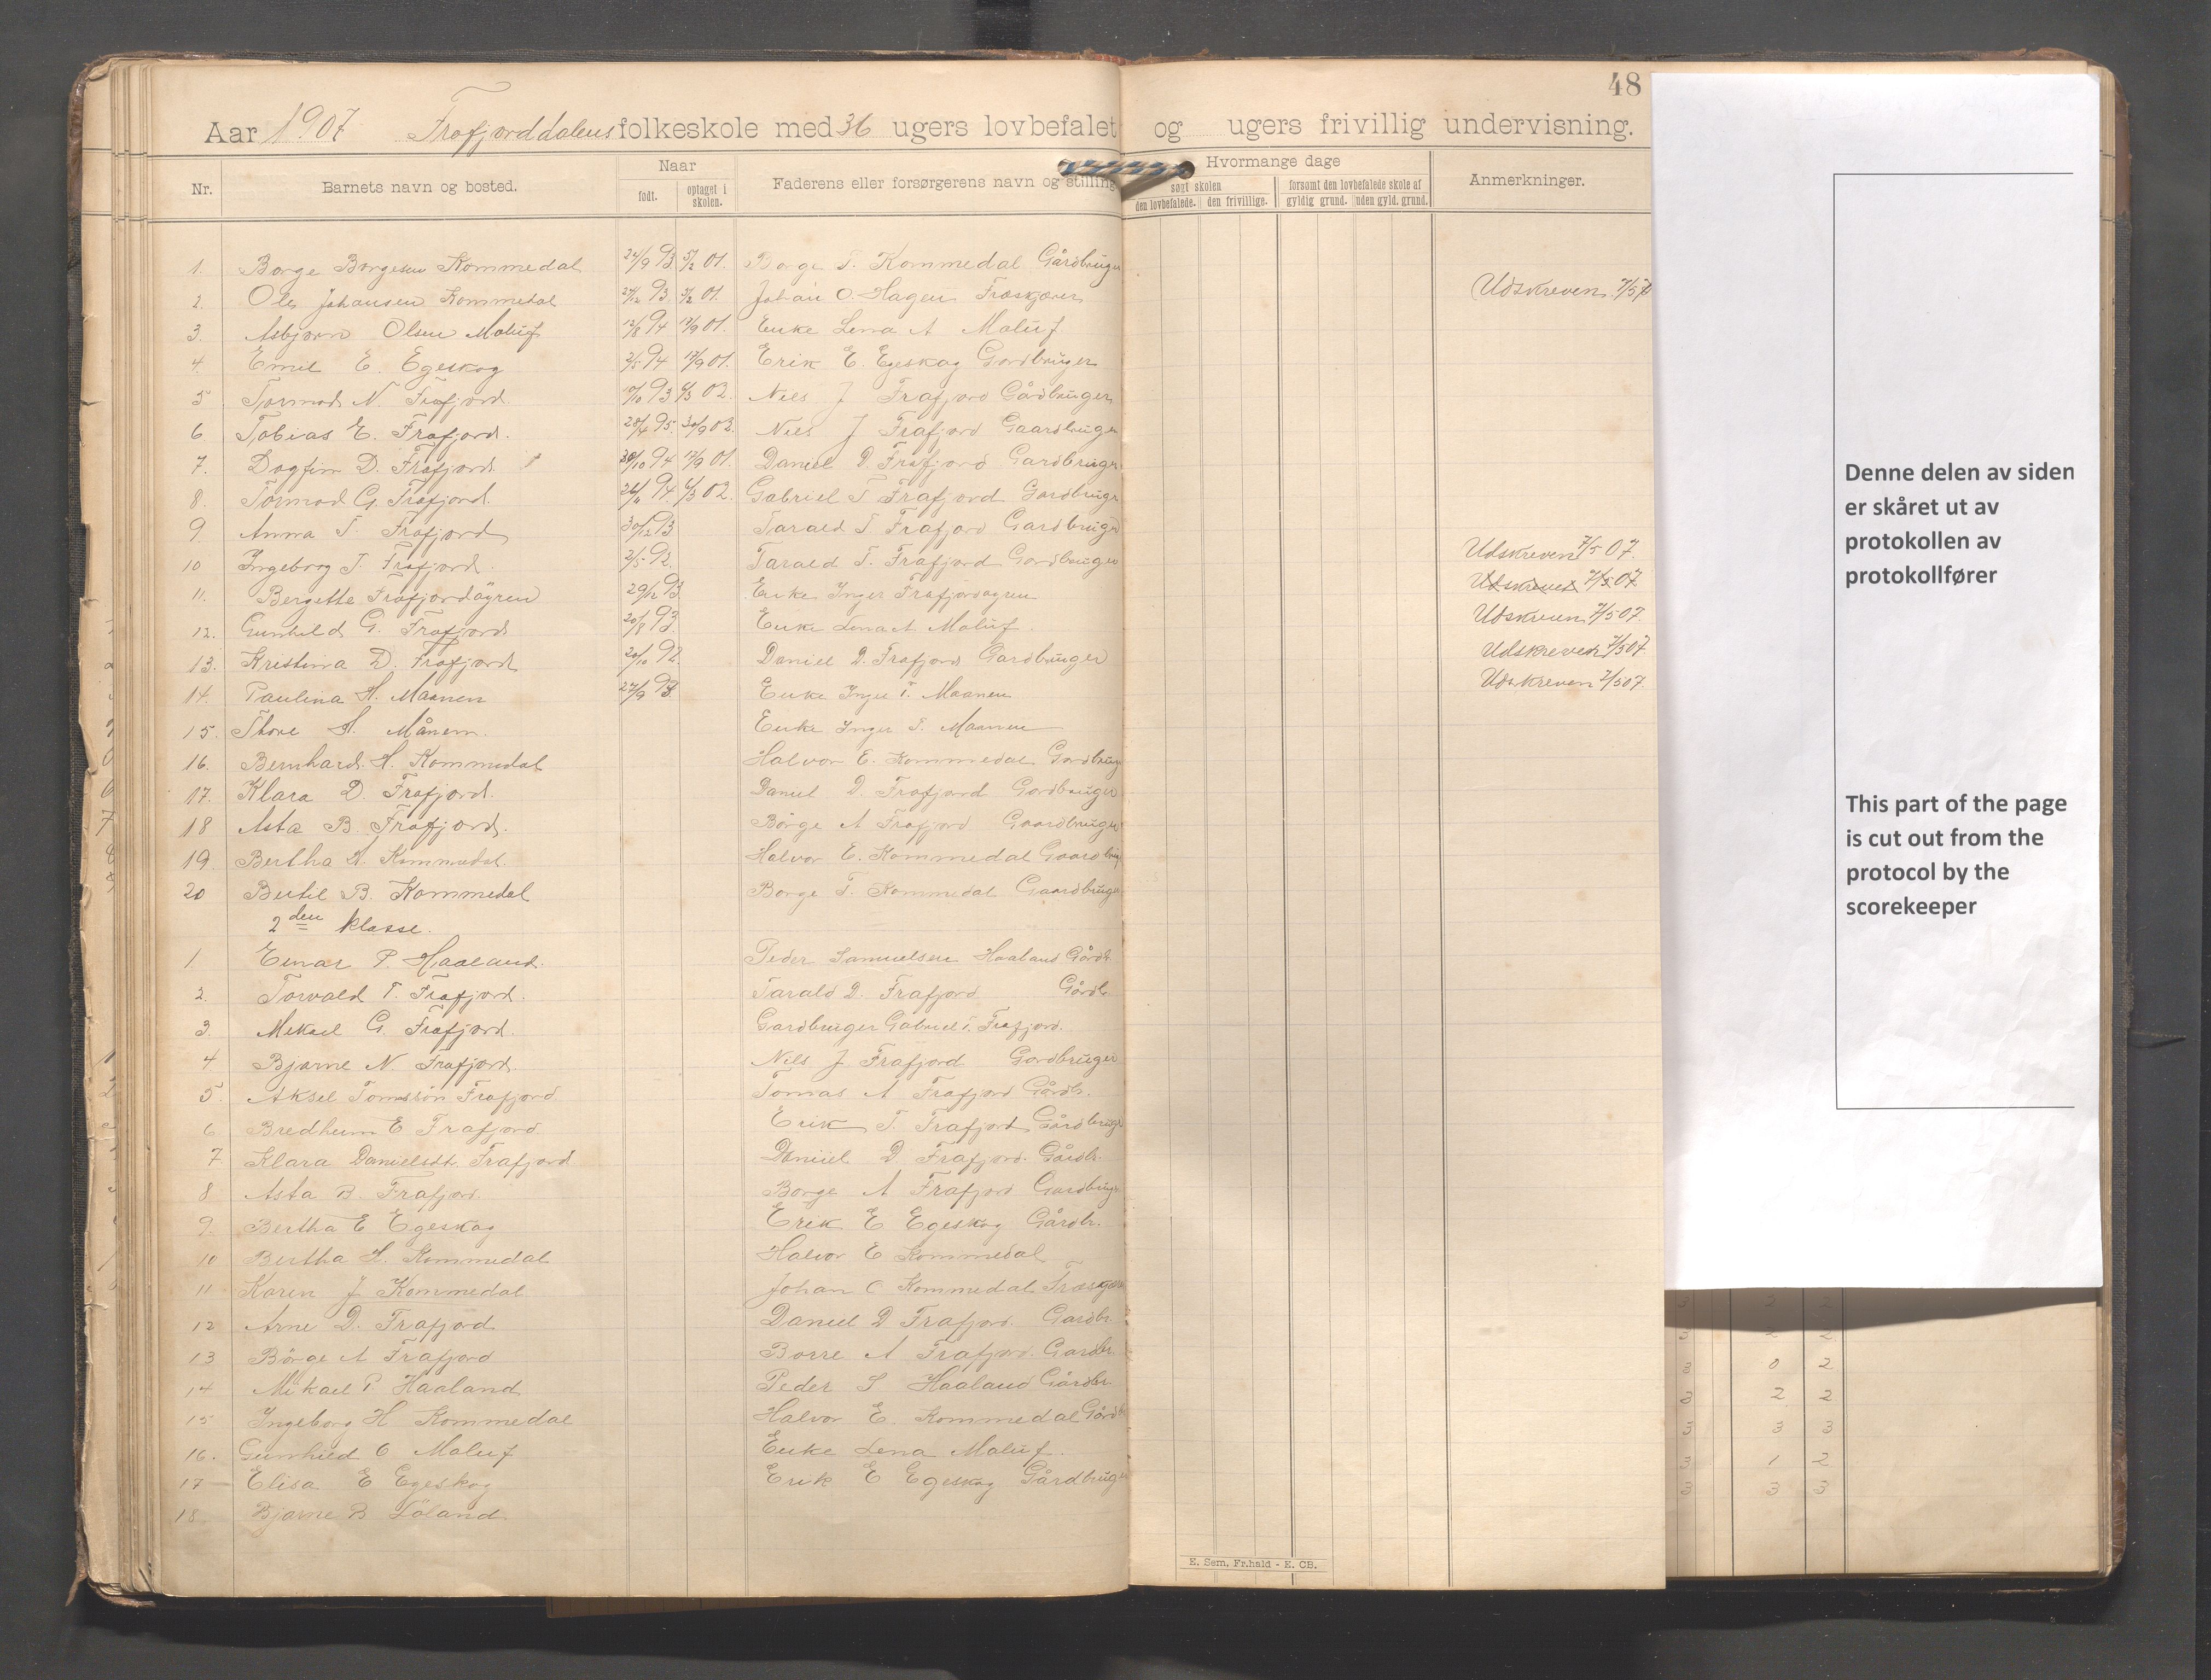 48
Aar 1907 Frafjorddalens folkeskole med 36 ugers lovbefalet og ugers frivillig undervisning.
Nr. Barnets navn og bosted. Naar Faderens eller forsørgerens navn og stilling Hvormange dage Anmerkninger.
født. optaget i skolen. søgt skolen forsømt den lovbefalede skole af
den lovbefalede. den frivillige. gyldig grund. uden gyld. grund.
1. Børge Børgesen Kommedal 24/9 93 5/2 01. Børge T. Kommedal Gårdbruger
2. Ole Johansen Kommedal 27/12 93. 5/2 01. Johan O. Hagen Træskjærer Udskreven 7/5 07
3. Asbjørn Olsen Maluf 12/8 94 17/9 01. Enke Lena A Maluf
4. Emil E. Egeskog 2/5 94 17/9 01. Erik E. Egeskog Gardbruger
5 Tormod N. Frafjord 10/10 93 6/3 02. Niels J Frafjord Gårdbruger
6 Tobias E. Frafjord. 28/4 95. 30/9 02. Niels J Frafjord Gaardbruger
7. Dagfin D. Frafjord 30/10 94 17/9 01. Daniel D. Frafjord Gardbruger
8. Tormod G. Frafjord. 26/11 94 6/3 02. Gabriel T Frafjord Gardbruger
9. Anna T. Frafjord 30/12 93 Tarald T Frafjord Gardbruger
10 Ingeborg T. Frafjord. 2/5 92. Tarald T. Frafjord Gardbruger Udskreven 7/5 07.
11. Bergette Frafjordøyren 29/12 93. Enke Inger Frafjordøyren Udskreven 7/5 07
12. Gunhild G. Frafjord 20/8 93 Enke Lena A Maluf. Udskreven 7/5 07.
13. Kristina D. Frafjord 20/10 92 Daniel D. Frafjord Gardbruger Udskreven 7/5 07
14 Paulina H. Maanen 27/9 93 Enke Inger T. Maanen Udskreven 7/5 07.
15. Thore H. Månen. Enke Inger T. Maanen
16. Bernhard H. Kommedal Halvor E. Kommedal Gardbruger
17. Klara D. Frafjord. Daniel D. Frafjord Gardbruger
18 Asta B. Frafjord. Børge A Frafjord Gaardbruger
19 Bertha H. Kommedal. Halvor E. Kommedal Gaardbrug
20 Bertil B. Kommedal Børge T. Kommedal Gaardbruger
2den klasse.
1. Einar P. Haaland. Peder Samuelsen Haaland Gårdb.
2. Torvald T. Frafjord. Tarald D. Frafjord Gårdb.
3. Mikael G. Frafjord. Gardbruger Gabriel T. Frafjord.
4 Bjarne N. Frafjord. Nils J Frafjord Gardbruger
5. Aksel Tomassøn Frafjord Tomas A Frafjord Gårdb.
6 Bredheim E Frafjord Erik T. Frafjord Gårdbruger
7 Klara Danielsdt. Frafjord Daniel D Frafjord. Gårdb.
8 Asta B. Frafjord. Børge A Frafjord Gardbruger
9. Bertha E Egeskog Erik E Egeskog Gårdb.
10 Bertha H. Kommedal Halvor E Kommedal
11 Karen J Kommedal Johan O Kommedal Træskjærer
12 Arne D. Frafjord Daniel D Frafjord. Gardbr.
13 Børge A Frafjord Børre A Frafjord. Gardbr
14 Mikael P. Haaland Peder S Haaland Gårdbr
15 Ingeborg H Kommedal Halvor E. Kommedal Gårdb
16. Gunhild O Maluf Enke Lena Maluf.
17 Elisa E Egeskog Erik E Egeskog Gårdbruger
18. Bjarne B Løland
E. Sem, Fr.hald - E. CB.
Denne delen av siden
er skåret ut av
protokollen av
protokollfører
This part of the page
is cut out from the
protocol by the
scorekeeper
3 2 2
3 2 2
3 0 2
3 2 2
3 3 3
3 1 2
3 3 3